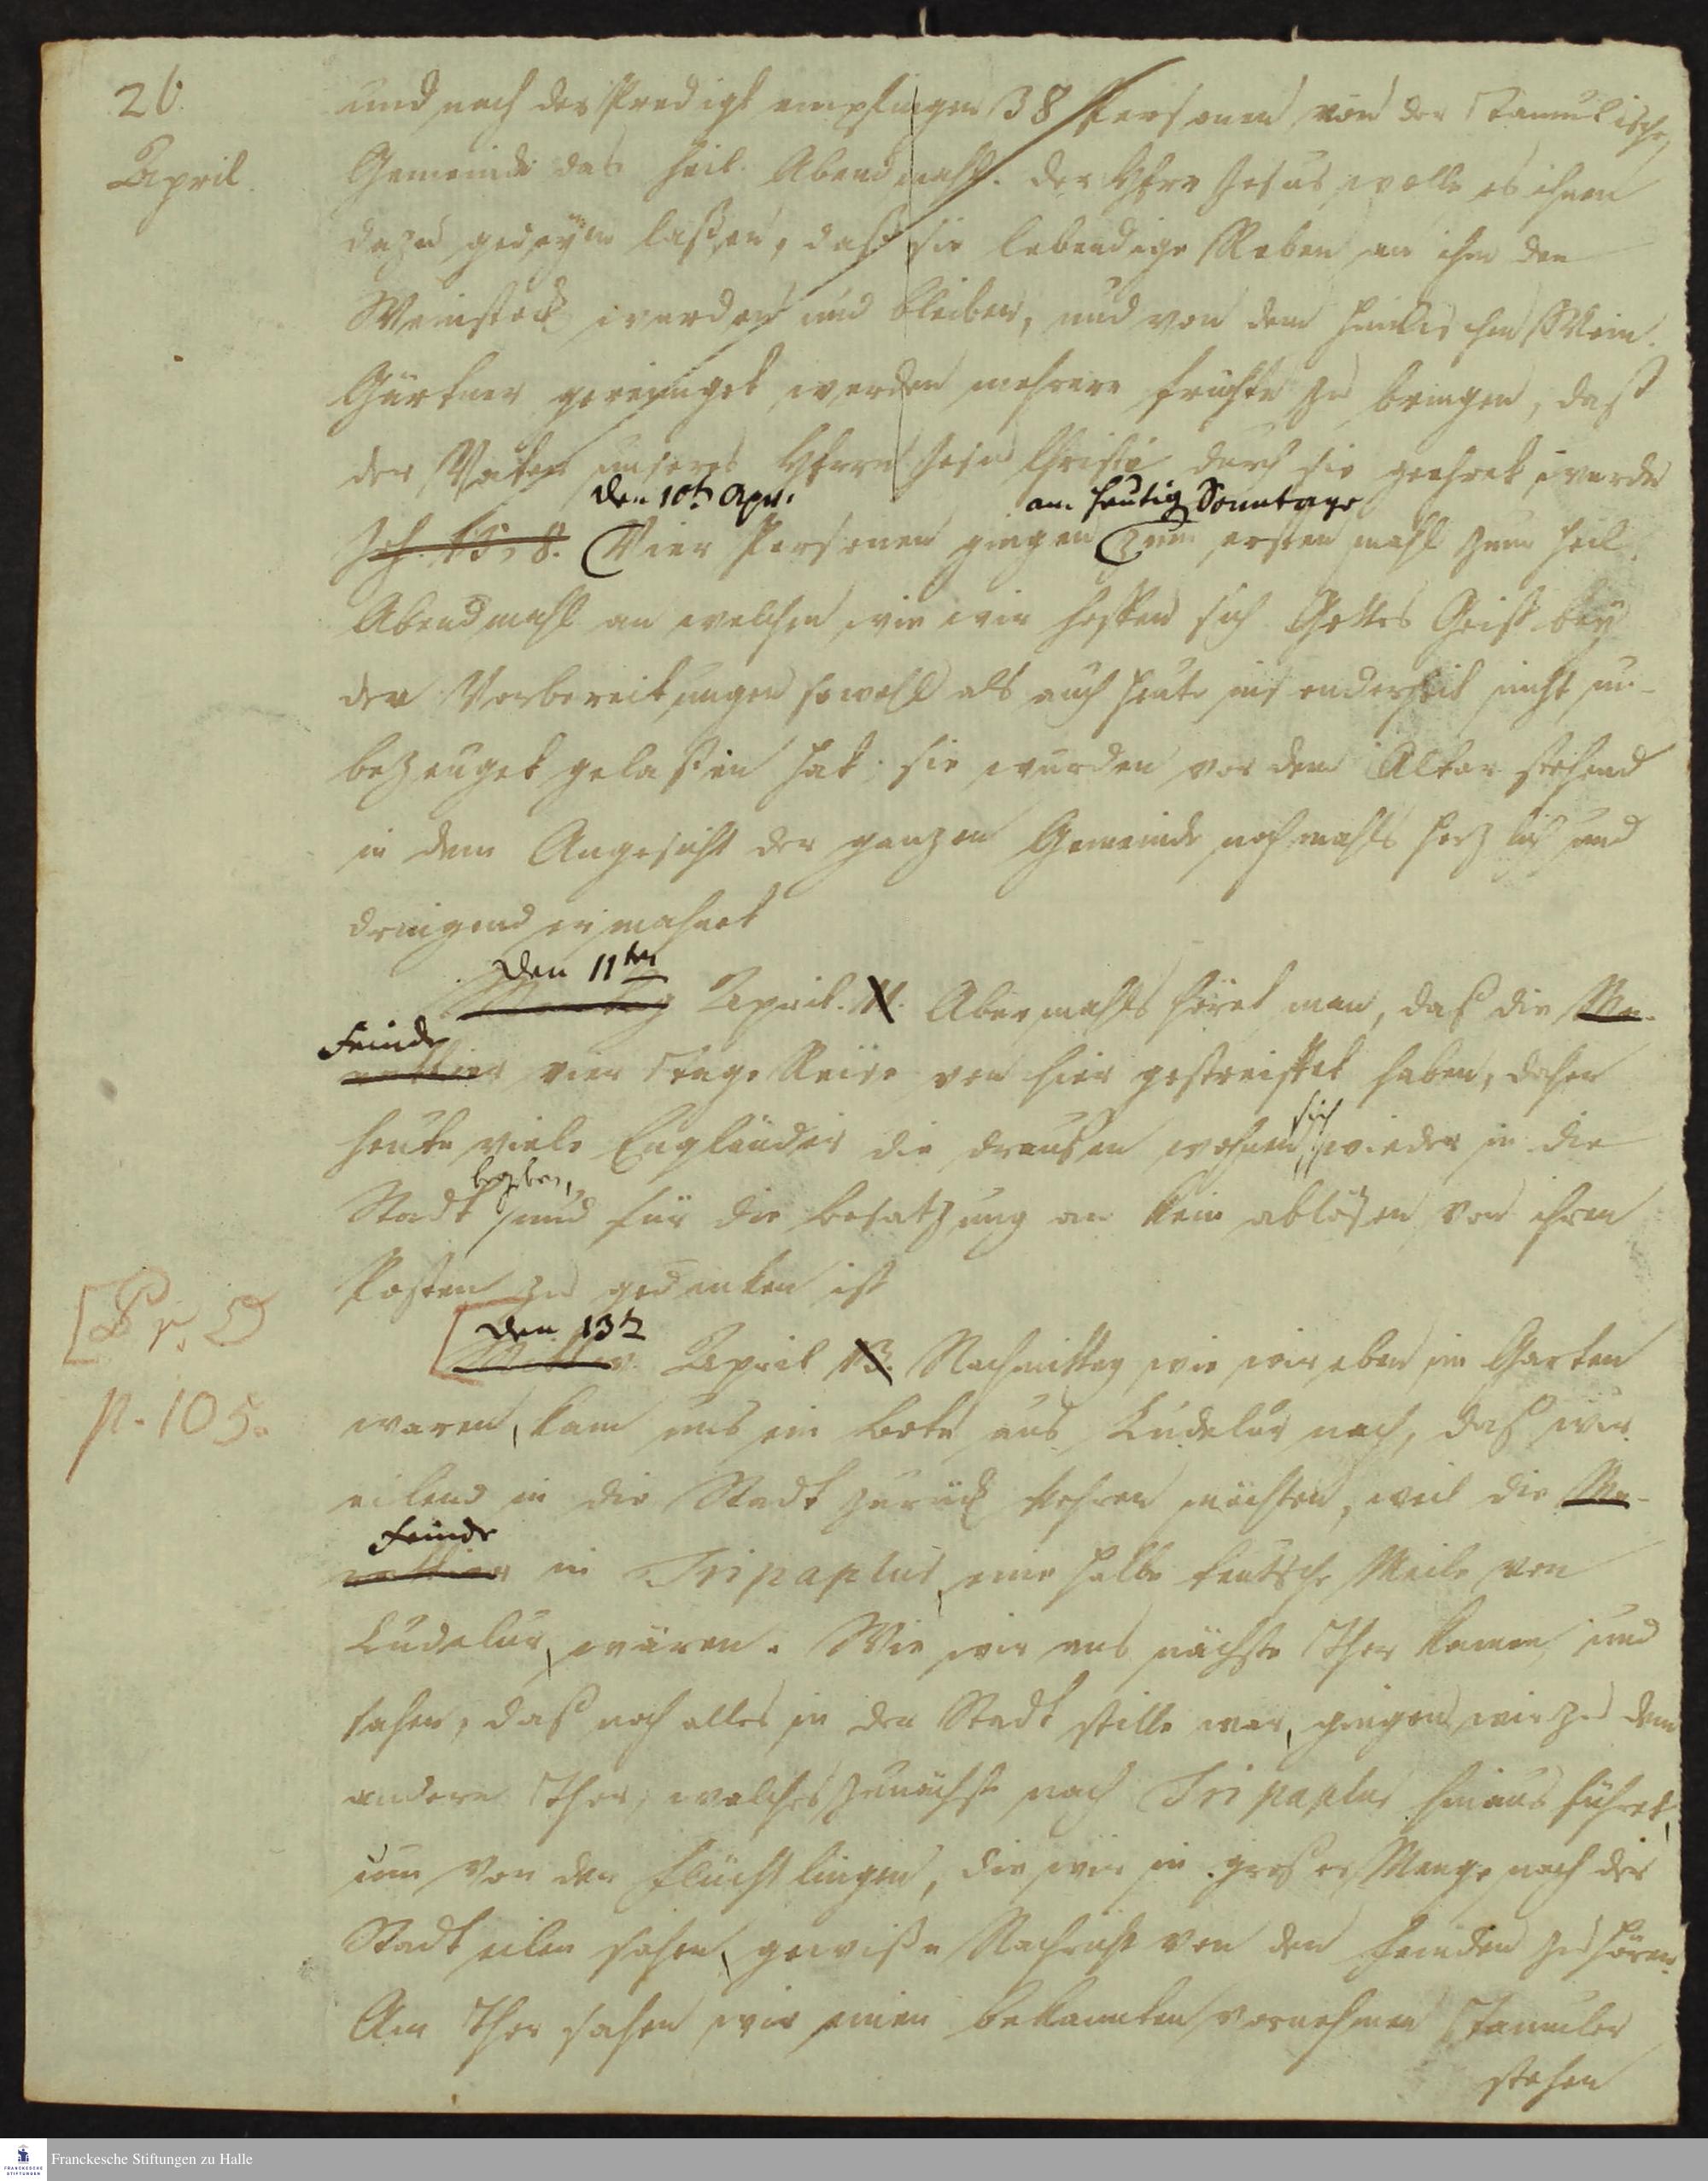 26.
April.
und nach der Predigt empfingen 38 Personen von der Tamulische
Gemeinde das heil. Abendmahl. Der Herr Jesus wolle es ihnen
dazu gedeyen laßen, daß sie lebendige Reben an ihm den
Weinstock werden und bleiben, und von dem himlischen Wein-
Gärtner gereiniget werden mehrere Früchte zu bringen, daß
der Vater unseres Herrn Jesu Christi durch sie geehret werde
den 10t. Apr.
am heutig Sonntage
Joh. 15, 8. Vier Personen gingen zum ersten mahl zum heil.
Abendmahl an welchen wie wir hoffen sich Gottes Geist bey
den Vorbereitungen sowohl als auch heute insonderheit nicht un-
bezeuget gelaßen hat; sie wurden vor dem Altar stehend
in dem Angesicht der ganzen Gemeinde nochmahls herzlich und
dringend ermahnet
den 11ten
Montag April. 11. Abermahls höret man, daß die Ma-
Feinde
ratthier vier Tage Reise von hier gestreifet haben, daher
sich
heute viele Engländer die draußen wohnen wieder in die
begeben,
Stadt und für die Besatzung an kein ablösen von ihren
Posten zu gedenken ist
[Pr. D
p. 105.
den 13t
Mittw. April 13. Nachmittag wie wir eben im Garten
waren, kam uns ein Bote aus Cudelur nach, daß wir
eilend in die Stadt zurück kehren möchten, weil die Ma-
Feinde
ratthier in Tripaplur, eine halbe teutsche Meile von
Cudelur, wären. Wie wir ans nächste Thor kamen und
sahen, daß noch alles in der Stadt stille war, gingen wir zu dem
andern Thor, welches zunächst nach Tripaplur hinaus führet,
um von den Flüchtlingen, die wir in großer Menge nach der
Stadt eilen sahen, gewiße Nachricht von den Feinden zu hören.
Am Thor sahen wir einen bekannten vornehmen Tamuler
stehen
FRANCKESCHE STIFTUNGEN
Franckesche Stiftungen zu Halle